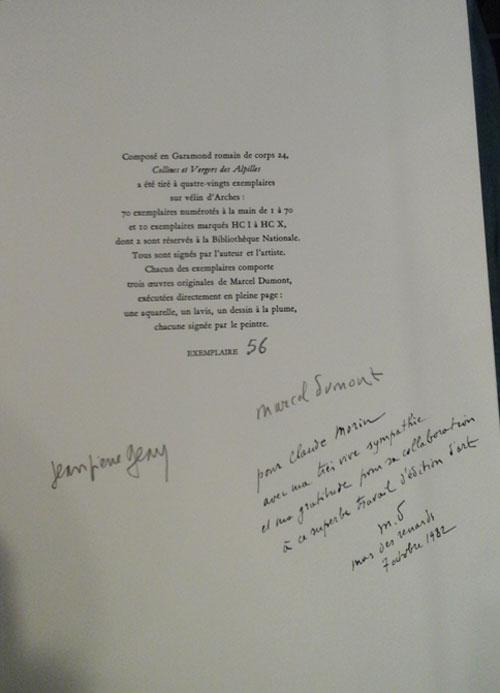 Composé en Garamond romain de corps 24,
Collines et Vergers des Alpilles
a été tiré à quatre-vingts exemplaires
sur vélin d'Arches :
70 exemplaires numérotés à la main de 1 à 70
et 10 exemplaires marqués HC I à HC X,
dont 2 sont réservés à la Bibliothèque Nationale.
Tous sont signés par l'auteur et l'artiste.
Chacun des exemplaires comporte
trois œuvres originales de Marcel Dumont,
exécutées directement en pleine page :
une aquarelle, un lavis, un dessin à la plume,
chacune signée par le peintre.
EXEMPLAIRE 56
Marcel Dumont
Jean Pierre Geay
pour Claude Morin
avec ma très vive sympathie
et ma gratitude pour sa collaboration
à ce superbe travail d'édition d'art
M. D
mas des renards
7 octobre 1982